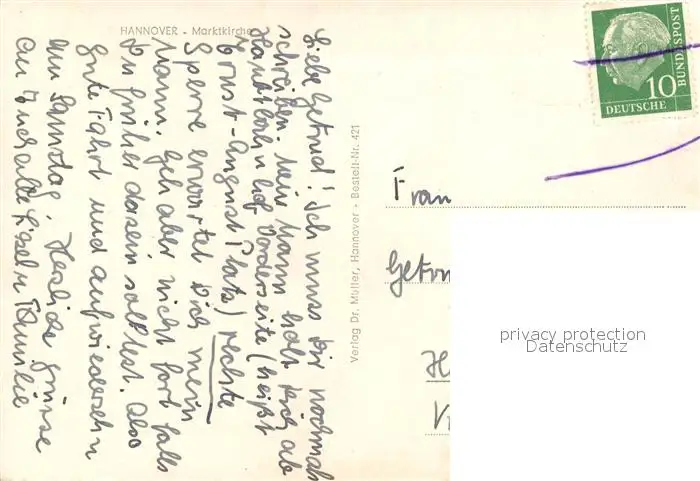 HANNOVER - Marktkirche
Liebe Getrud! Ich muss Dir nochmals
schreiben, mein Mann holt Dich ab
Hauptbahnhof Vorderseite (heißt
Ernst-August Platz) rechte
Sperre erwartet Dich mein
Mann. Geh aber nicht fort falls
Du früher dasein solltest. Also
Gute Fahrt und aufwiedersehn
am Samstag. Herzliche Grüsse
an Euch alle Lisel u Familie
Verlag Dr. Müller, Hannover - Bestell-Nr. 421
DEUTSCHE
BUNDESPOST
10
Frau
privacy protection
Datenschutz